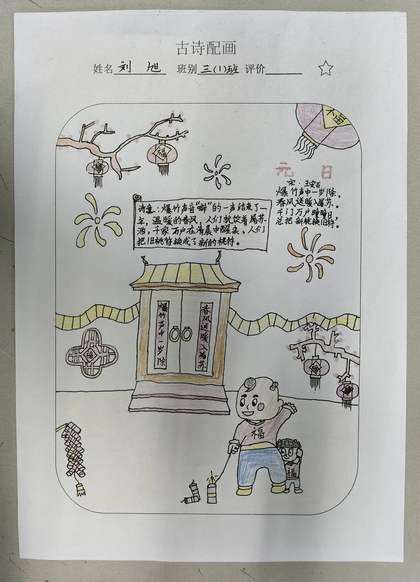 古诗配画
姓名 刘旭 班别 三(1)班 评价
元日
宋·王安石
爆竹声中一岁除,
春风送暖入屠苏。
千门万户曈曈日,
总把新桃换旧符。
诗意:爆竹声音"噼"的一声结束了一
年,温暖的春风,人们就饮着屠苏
酒,千家万户在清晨中醒来,人们
把旧桃符换成了新的桃符。
爆竹声中一岁除
春风送暖入屠苏
福
福